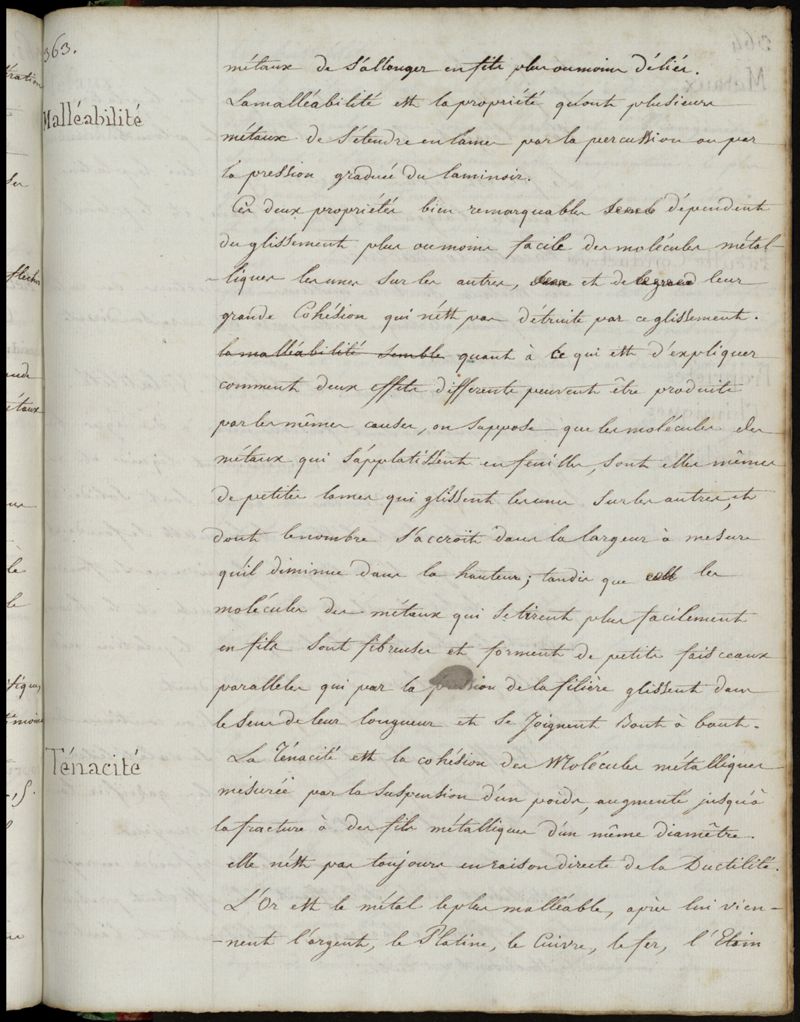 363.
métaux de S'allonger en fils plus ou moins déliés.
Malléabilité
La malléabilité est la propriété qu'ont plusieurs
métaux de S'étendre en lames par la percussion ou par
la pression graduée du laminoir.
Ces deux propriétés bien remarquables dépendent
du glissement plus ou moins facile des molécules métal-
-liques les unes Sur les autres, et de leur
grande Cohésion qui n'est pas détruite par ce glissement.
la malléabilité semble quant à ce qui est d'expliquer
comment deux effets différents peuvent être produits
par les mêmes causes, on Suppose que les molécules des
métaux qui S'applatissent en feuilles, sont elles mêmes
de petites lames qui glissent les unes Sur les autres, et
dont le nombre S'accroit dans la largeur à mesure
qu'il diminue dans la hauteur; tandis que les
molécules des métaux qui Se tirent plus facilement
en fils Sont fibreuses et forment de petits faisceaux
paralleles qui par la pression de la filière glissent dans
le Sens de leur longueur et Se Joignent Bout à bout.
Ténacité
La Ténacité est la cohésion des Molécules métalliques
mésurée par la Suspension d'un poids, augmenté jusqu'à
la fracture à des fils métalliques d'un même diamêtre.
elle n'est pas toujours en raison directe de la Ductilité.
L'Or est le métal le plus malléable, après lui vien-
-nent l'argent, le Platine, le Cuivre, le fer, l'Etain